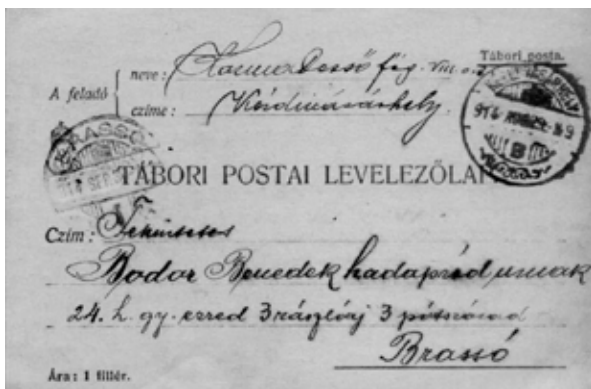 Tábori posta.
A feladó
neve: Dezső fög. VIII.
czime: Kézdivásárhely.
BRASSÓ
KÉZDIVÁSÁRHELY
TÁBORI POSTAI LEVELEZŐLAP
Czím: Tekintetes
Bodor Benedek hadapród urnak
24. h. gy. ezred 3 zászlóaj 3 pótszázad
Brassó
Ára: 1 fillér.